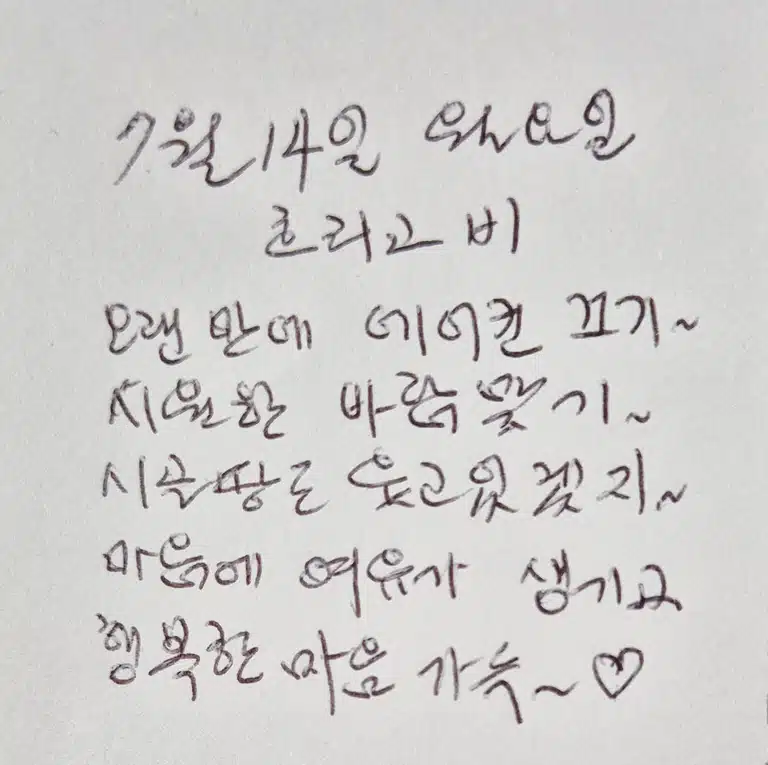 7월 14일 월요일
흐리고 비
오랜만에 에어컨 끄기~
시원한 바람 맞기~
시골 땅도 웃고 있겠지~
마음에 여유가 생기고
행복한 마음 가득~♡